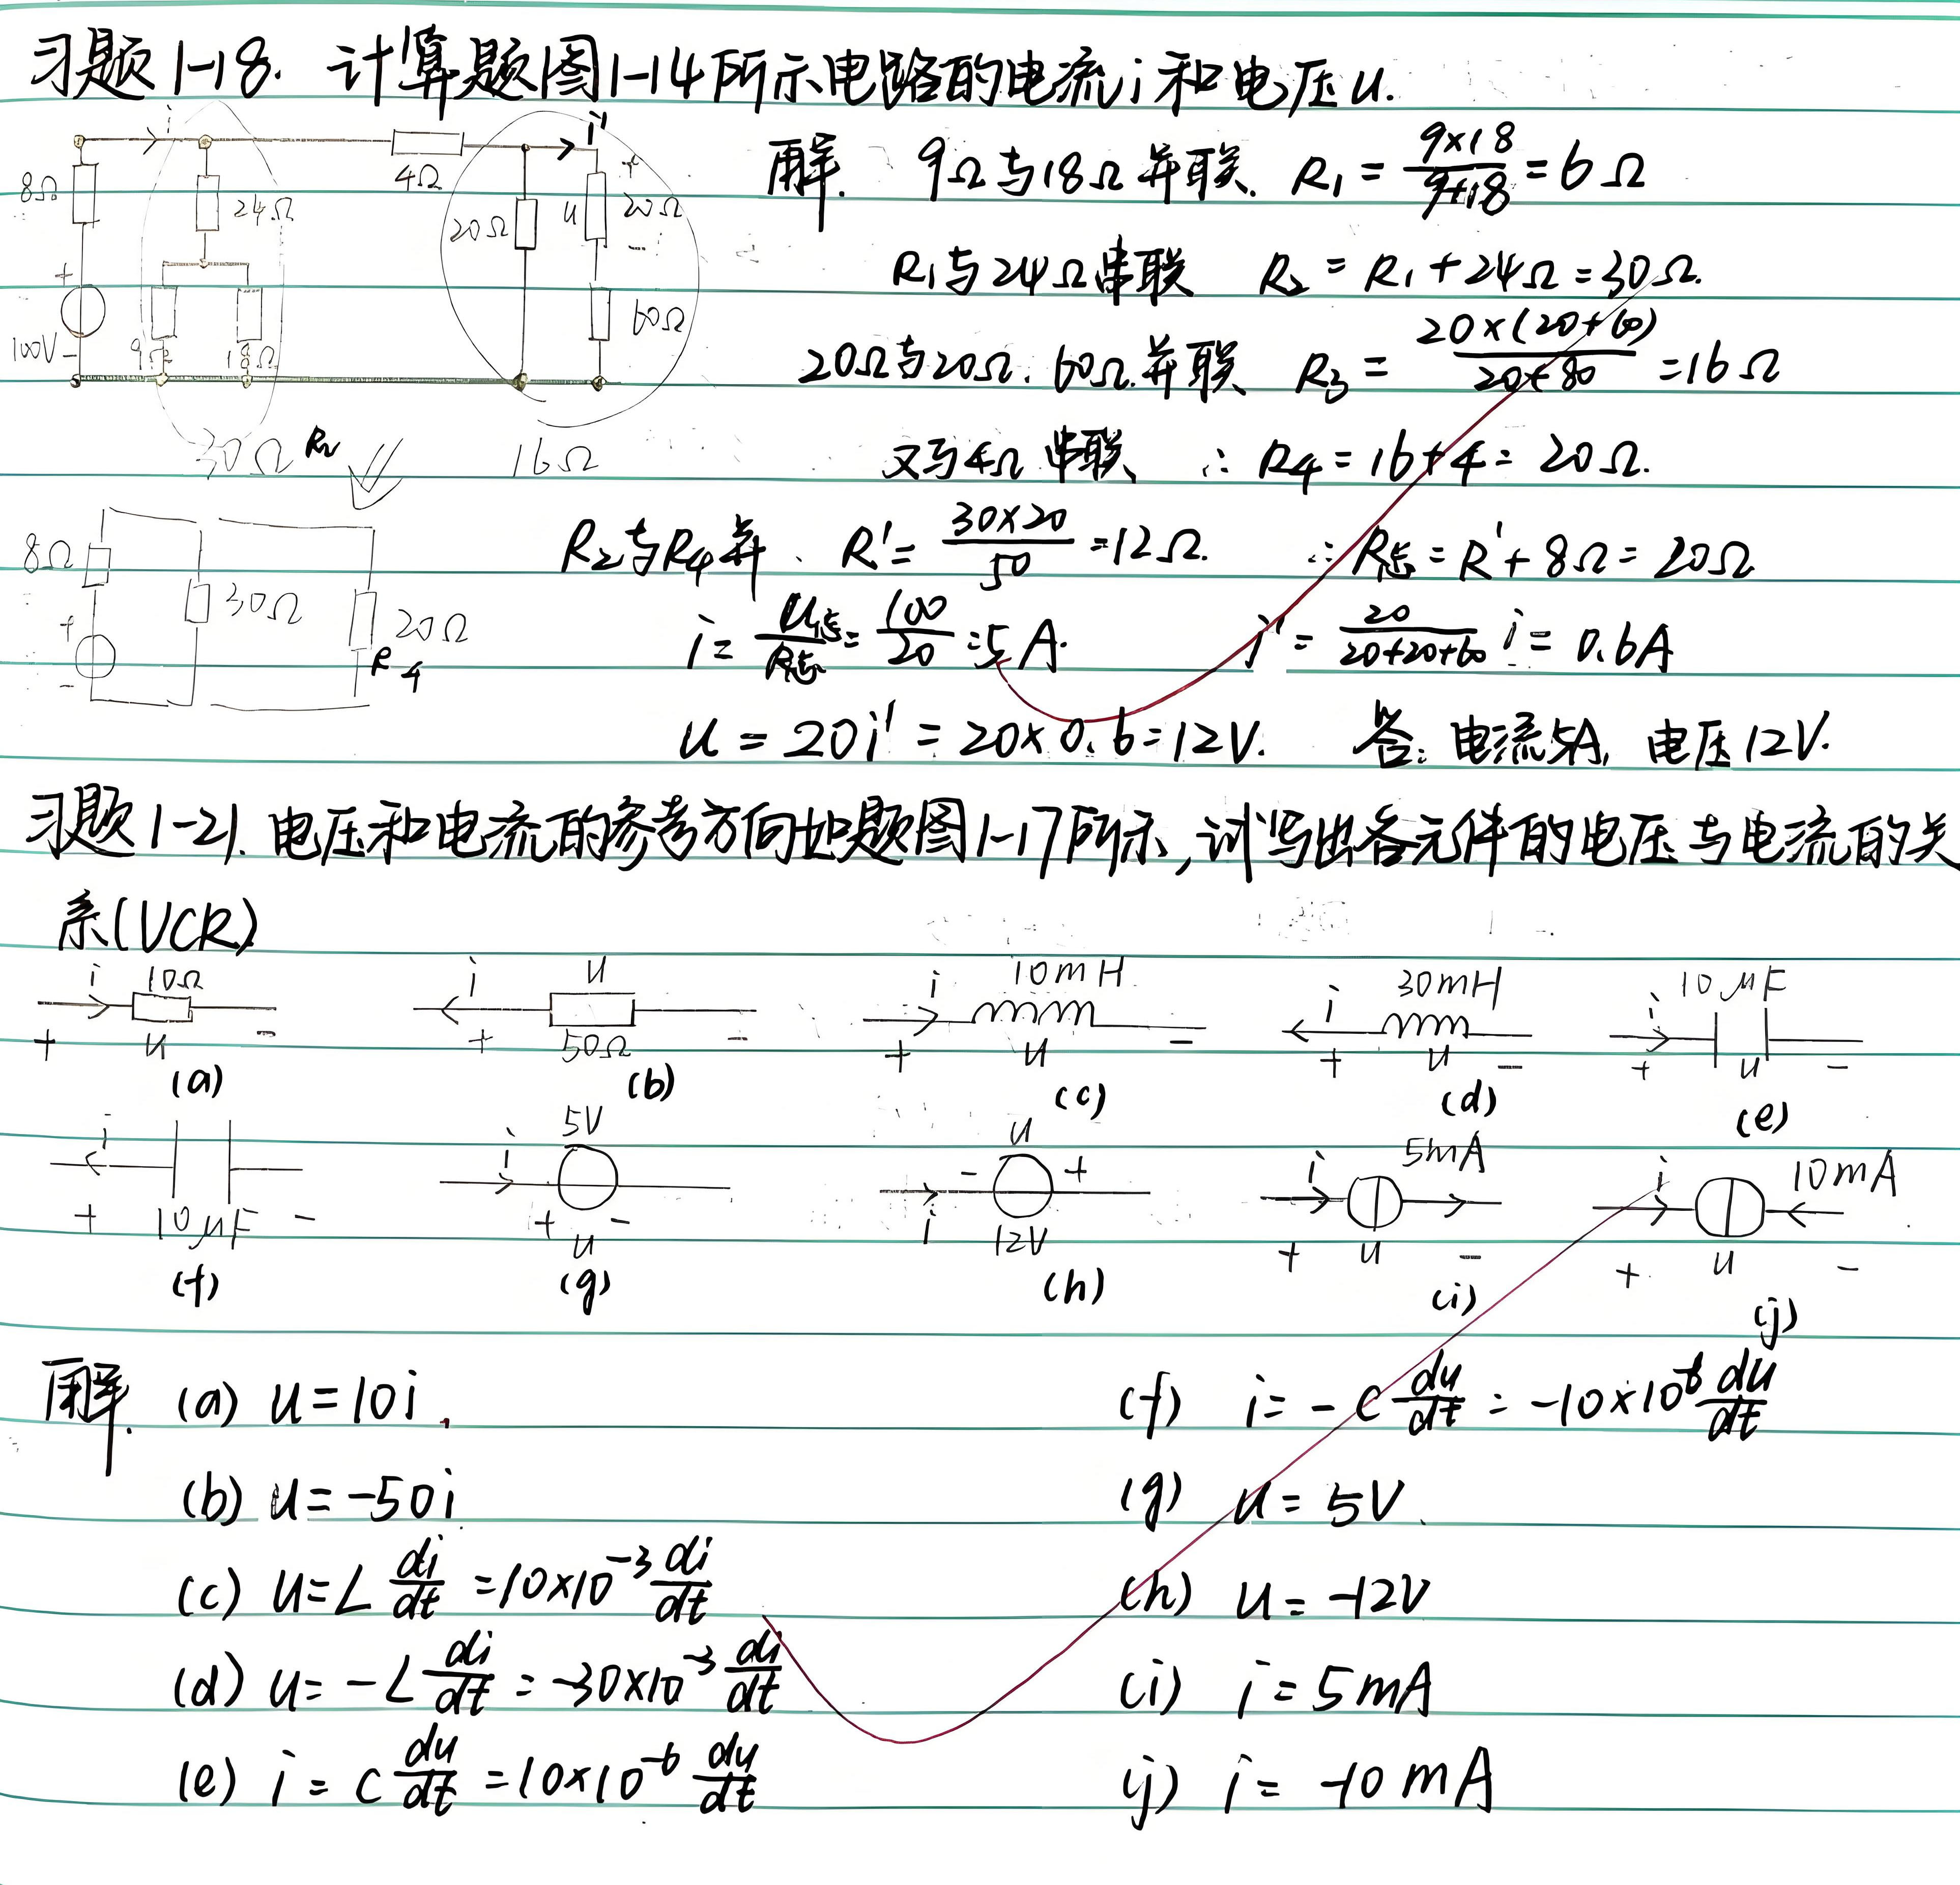 习题1-18. 计算题图1-14所示电路的电流i和电压u.
i 4Ω i'
8Ω 24Ω 20Ω u + 20Ω -
+ 100V - 9Ω 18Ω 60Ω
30Ω R₂ 16Ω
8Ω 30Ω 20Ω R4
+ -
解. 9Ω与18Ω并联. R₁ = \frac{9×18}{9+18} = 6Ω
R₁与24Ω串联 R₂ = R₁ + 24Ω = 30Ω.
20Ω与20Ω. 60Ω并联 R₃ = \frac{20×(20+60)}{20+80} = 16Ω
又与4Ω串联、 ∴ R4 = 16+4 = 20Ω.
R₂与R4并、R' = \frac{30×20}{50} = 12Ω. ∴ R总 = R' + 8Ω = 20Ω
i = \frac{U总}{R总} = \frac{100}{20} = 5A. i' = \frac{20}{20+20+60} i = 0.6A
u = 20i' = 20×0.6 = 12V. 答: 电流5A, 电压12V.
习题1-21. 电压和电流的参考方向如题图1-17所示,试写出各元件的电压与电流的关
系(VCR)
i 10Ω + u - (a)
i u + 50Ω - (b)
i 10mH + u - (c)
i 30mH + u - (d)
i 10μF + u - (e)
i + 10μF - (f)
i 5V + u - (g)
u - + i 12V (h)
i 5mA + u - (i)
i 10mA + u - (j)
解. (a) u = 10i.
(b) u = -50i
(c) u = L\frac{di}{dt} = 10×10⁻³\frac{di}{dt}
(d) u = -L\frac{di}{dt} = -30×10⁻³\frac{di}{dt}
(e) i = C\frac{du}{dt} = 10×10⁻⁶\frac{du}{dt}
(f) i = -C\frac{du}{dt} = -10×10⁻⁶\frac{du}{dt}
(g) u = 5V.
(h) u = -12V
(i) i = 5mA
(j) i = -10mA